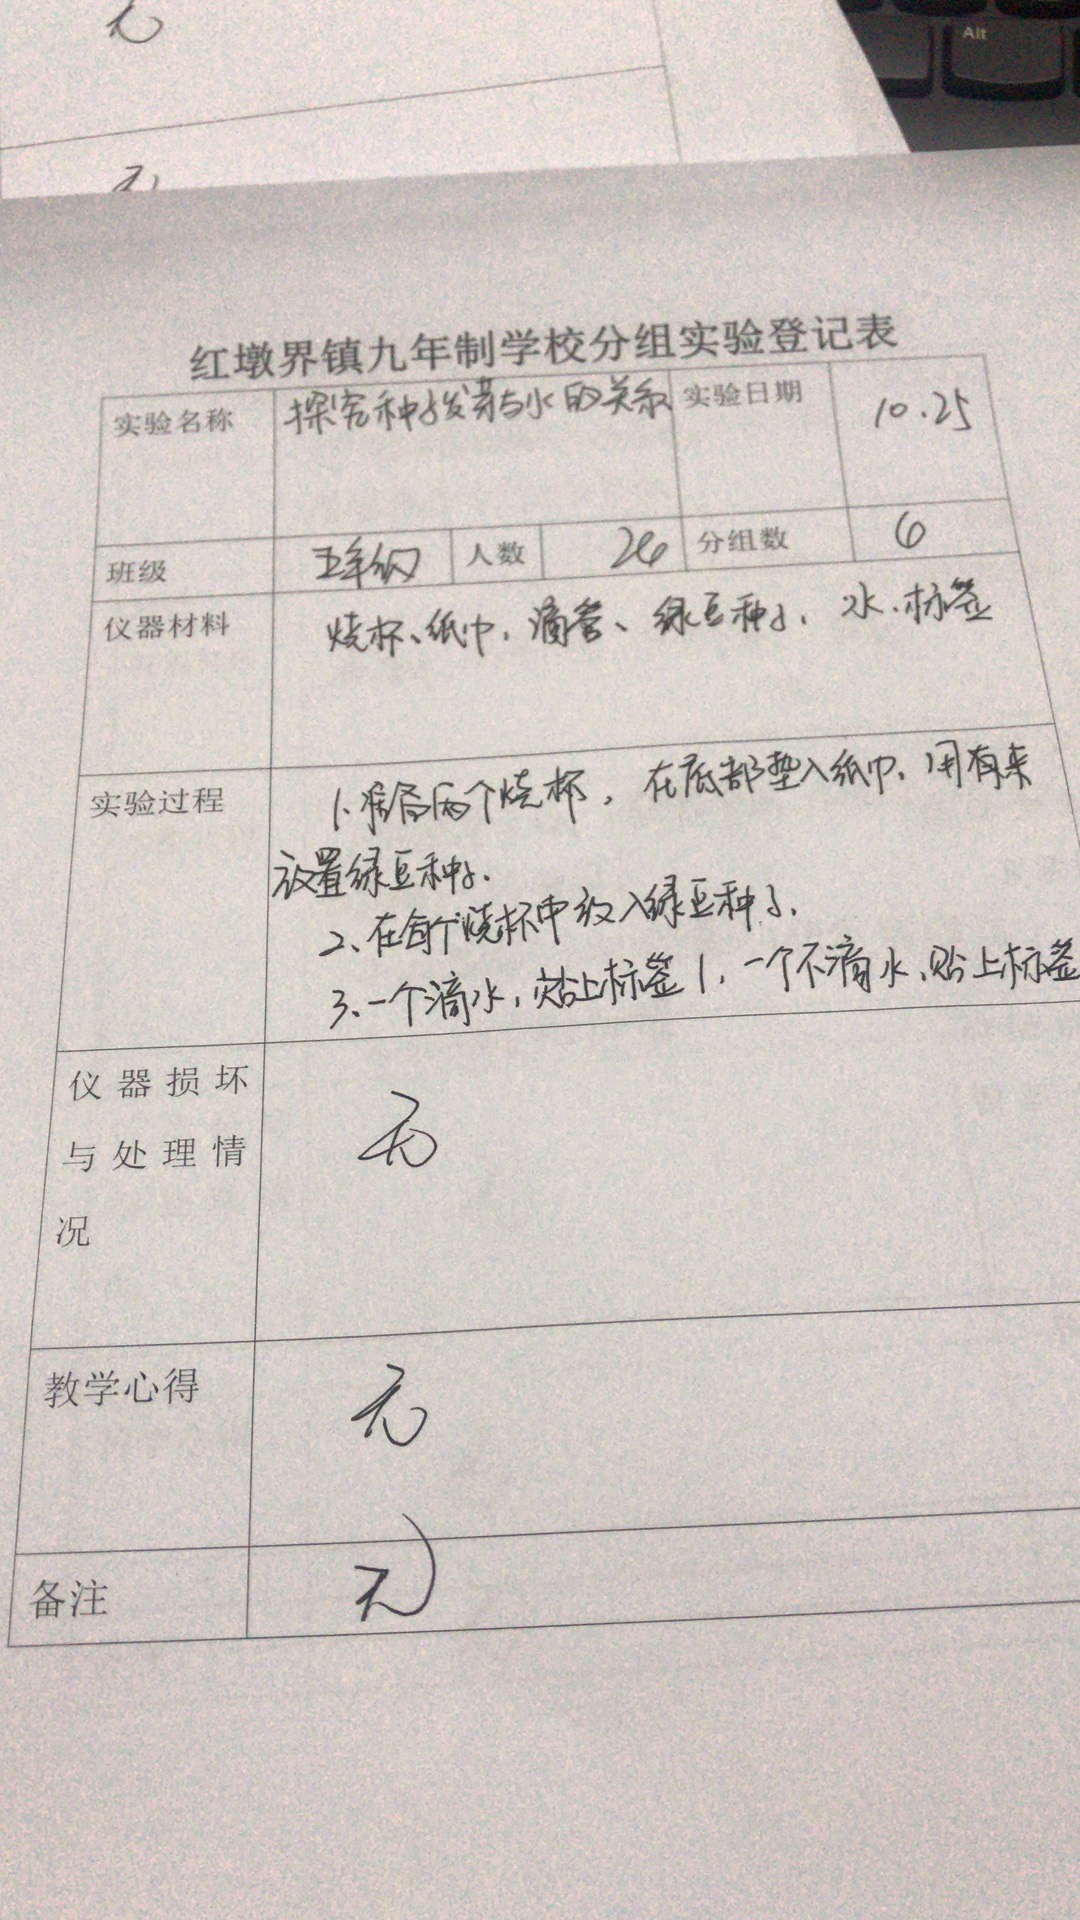 Alt
无
无
红墩界镇九年制学校分组实验登记表
实验名称 探究种子发芽与水的关系 实验日期 10.25
班级 五年级 人数 26 分组数 6
仪器材料 烧杯、纸巾、滴管、绿豆种子、水、标签
实验过程 1、准备两个烧杯，在底部垫入纸巾、用有来
放置绿豆种子.
2、在每个烧杯中放入绿豆种子.
3、一个滴水，贴上标签1，一个不滴水、贴上标签
仪器损坏
与处理情
况
无
教学心得 无
备注 无